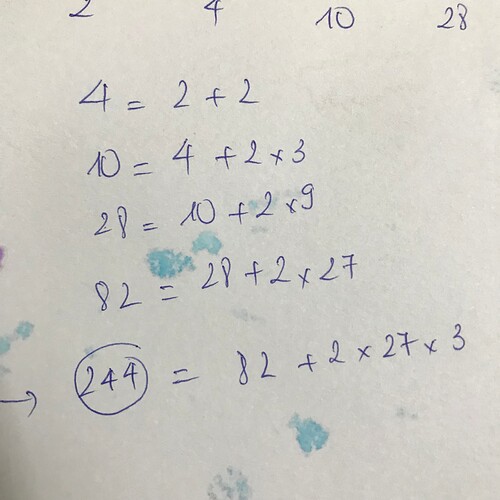 2 4 10 28
4 = 2 + 2
10 = 4 + 2 × 3
28 = 10 + 2 × 9
82 = 28 + 2 × 27
→ 244 = 82 + 2 × 27 × 3